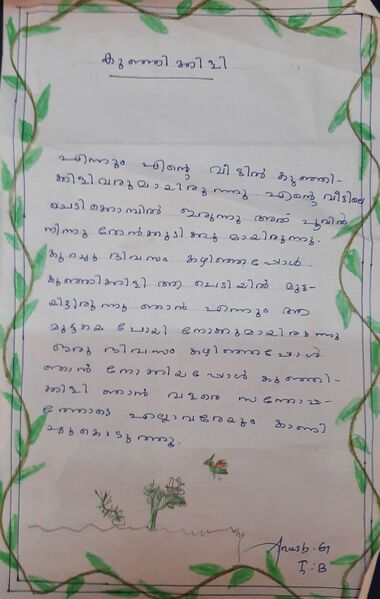 കുഞ്ഞിക്കിളി
എന്നും എന്റെ വീട്ടിൽ കുഞ്ഞി-
ക്കിളിവരുമായിരുന്നു. എന്റെ വീട്ടിലെ
ചെടിക്കൊമ്പിൽ ഇരുന്നു അത് പൂവിൽ
നിന്നു തേൻകുടിക്കുമായിരുന്നു.
കുറച്ചു ദിവസം കഴിഞ്ഞപ്പോൾ
കുഞ്ഞിക്കിളി ആ ചെടിയിൽ മുട്ട-
യിട്ടിരുന്നു ഞാൻ എന്നും ആ
മുട്ടയെ പോയി നോക്കുമായിരുന്നു
ഒരു ദിവസം കഴിഞ്ഞപ്പോൾ
ഞാൻ നോക്കിയപ്പോൾ കുഞ്ഞി-
ക്കിളി ഞാൻ വളരെ സന്തോഷ-
ത്തോടെ എല്ലാവരേയും കാണി
ച്ചുകൊടുത്തു.
Anush.G